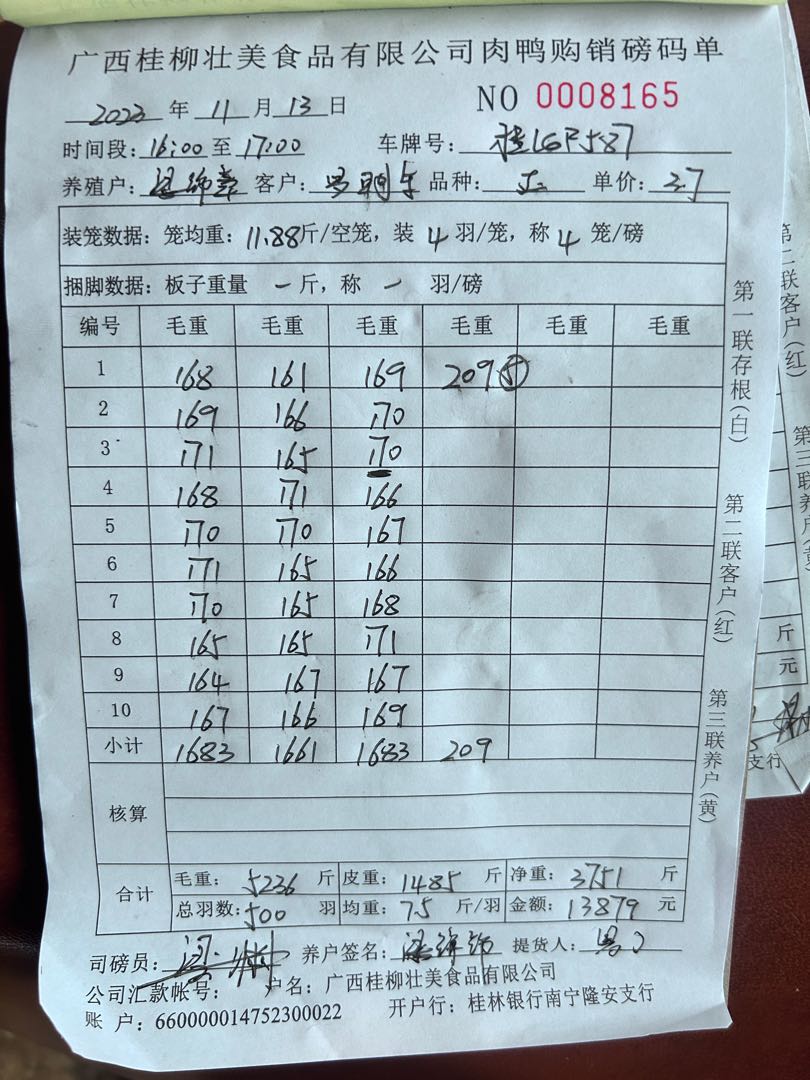 广西桂柳壮美食品有限公司肉鸭购销磅码单
2023 年 11 月 13 日 NO 0008165
时间段: 16:00 至 17:00 车牌号: 桂LGF587
养殖户: 客户: 品种: 单价: 3.7
装笼数据: 笼均重: 11.88 斤/空笼, 装 4 羽/笼, 称 4 笼/磅
捆脚数据: 板子重量 一 斤, 称 一 羽/磅
编号 毛重 毛重 毛重 毛重 毛重 毛重
1 168 161 169 209 ⑤
2 169 166 170
3 171 165 170
4 168 171 166
5 170 170 167
6 171 165 166
7 170 165 168
8 165 165 171
9 164 167 167
10 167 166 169
小计 1683 1661 1683 209
核算
合计 毛重: 5236 斤 皮重: 1485 斤 净重: 3751 斤
总羽数: 500 羽 均重: 7.5 斤/羽 金额: 13879 元
司磅员: 养户签名: 提货人:
公司汇款帐号: 户名: 广西桂柳壮美食品有限公司
账 户: 660000014752300022 开户行: 桂林银行南宁隆安支行
第一联存根(白)
第二联客户(红)
第三联养户(黄)
第二联客户(红)
第三联养户(黄)
斤
元
支行